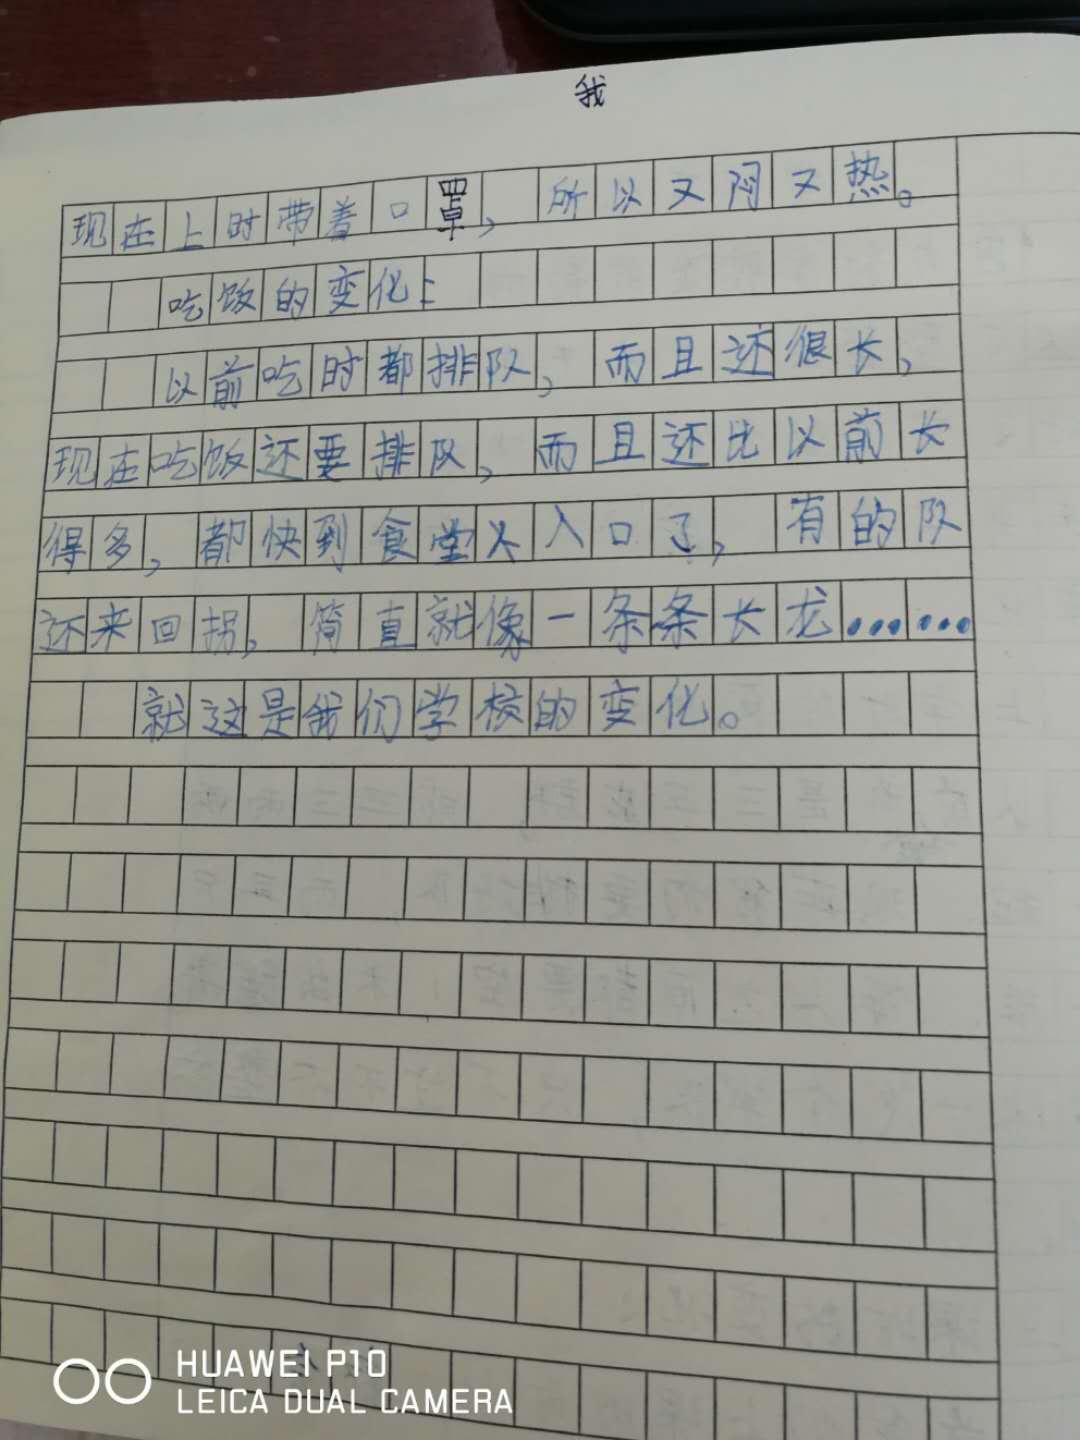 我
现在上时带着口罩，所以又闷又热。
吃饭的变化：
以前吃时都排队，而且还很长，
现在吃饭还要排队，而且还比以前长
得多，都快到食堂入口了，有的队
还来回拐，简直就像一条条长龙……
就这是我们学校的变化。
HUAWEI P10
LEICA DUAL CAMERA